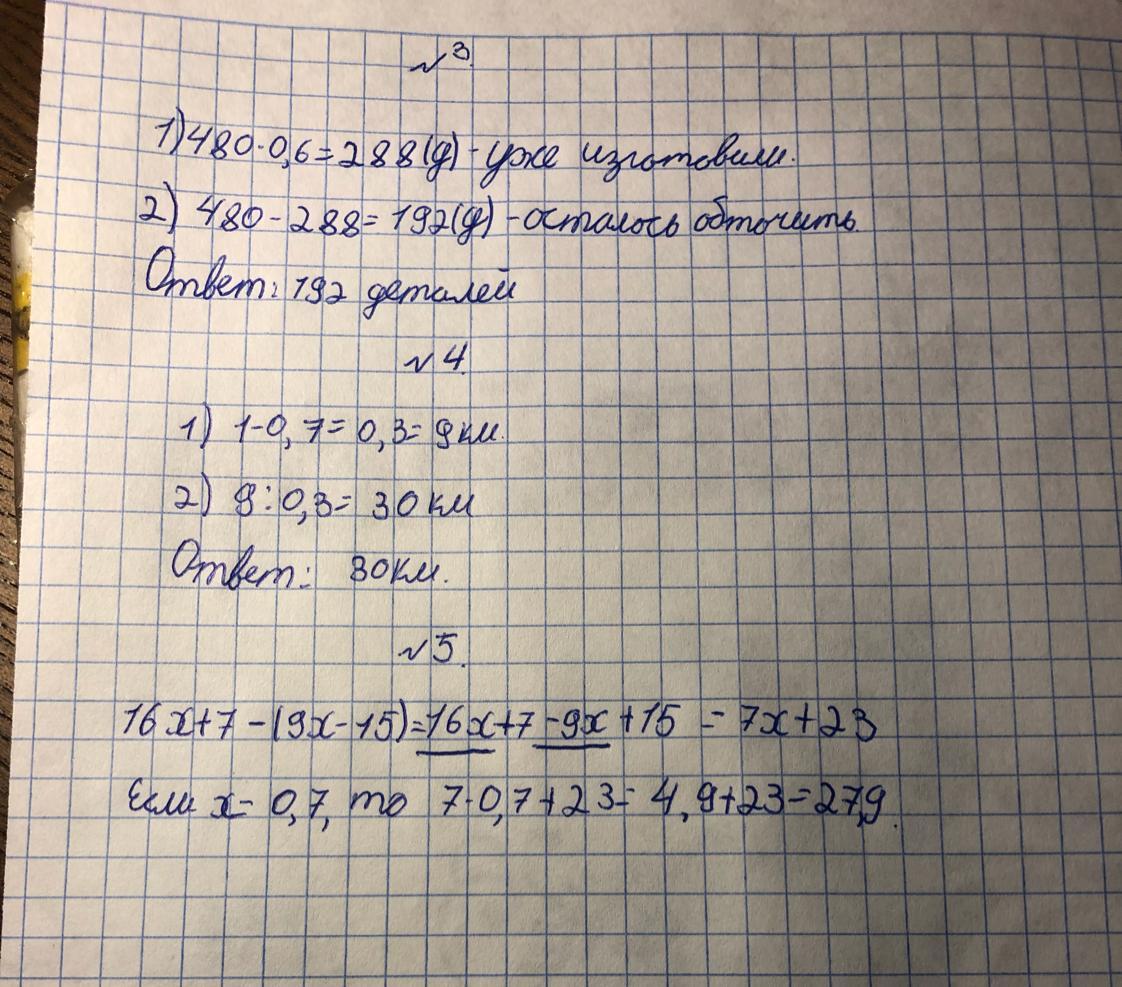 №3.
1) 480·0,6=288(д) - уже изготовили.
2) 480-288=192(д) - осталось обточить.
Ответ: 192 деталей
№4.
1) 1-0,7=0,3=9км.
2) 9:0,3=30км
Ответ: 30км.
№5.
16x+7-(9x-15)=16x+7-9x+15=7x+23
Если x=0,7, то 7·0,7+23=4,9+23=27,9.